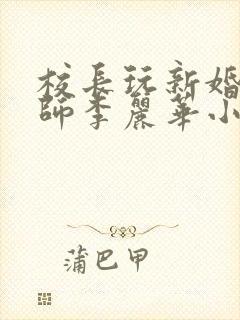 校長玩新婚
師李麗華小
蒲巴甲